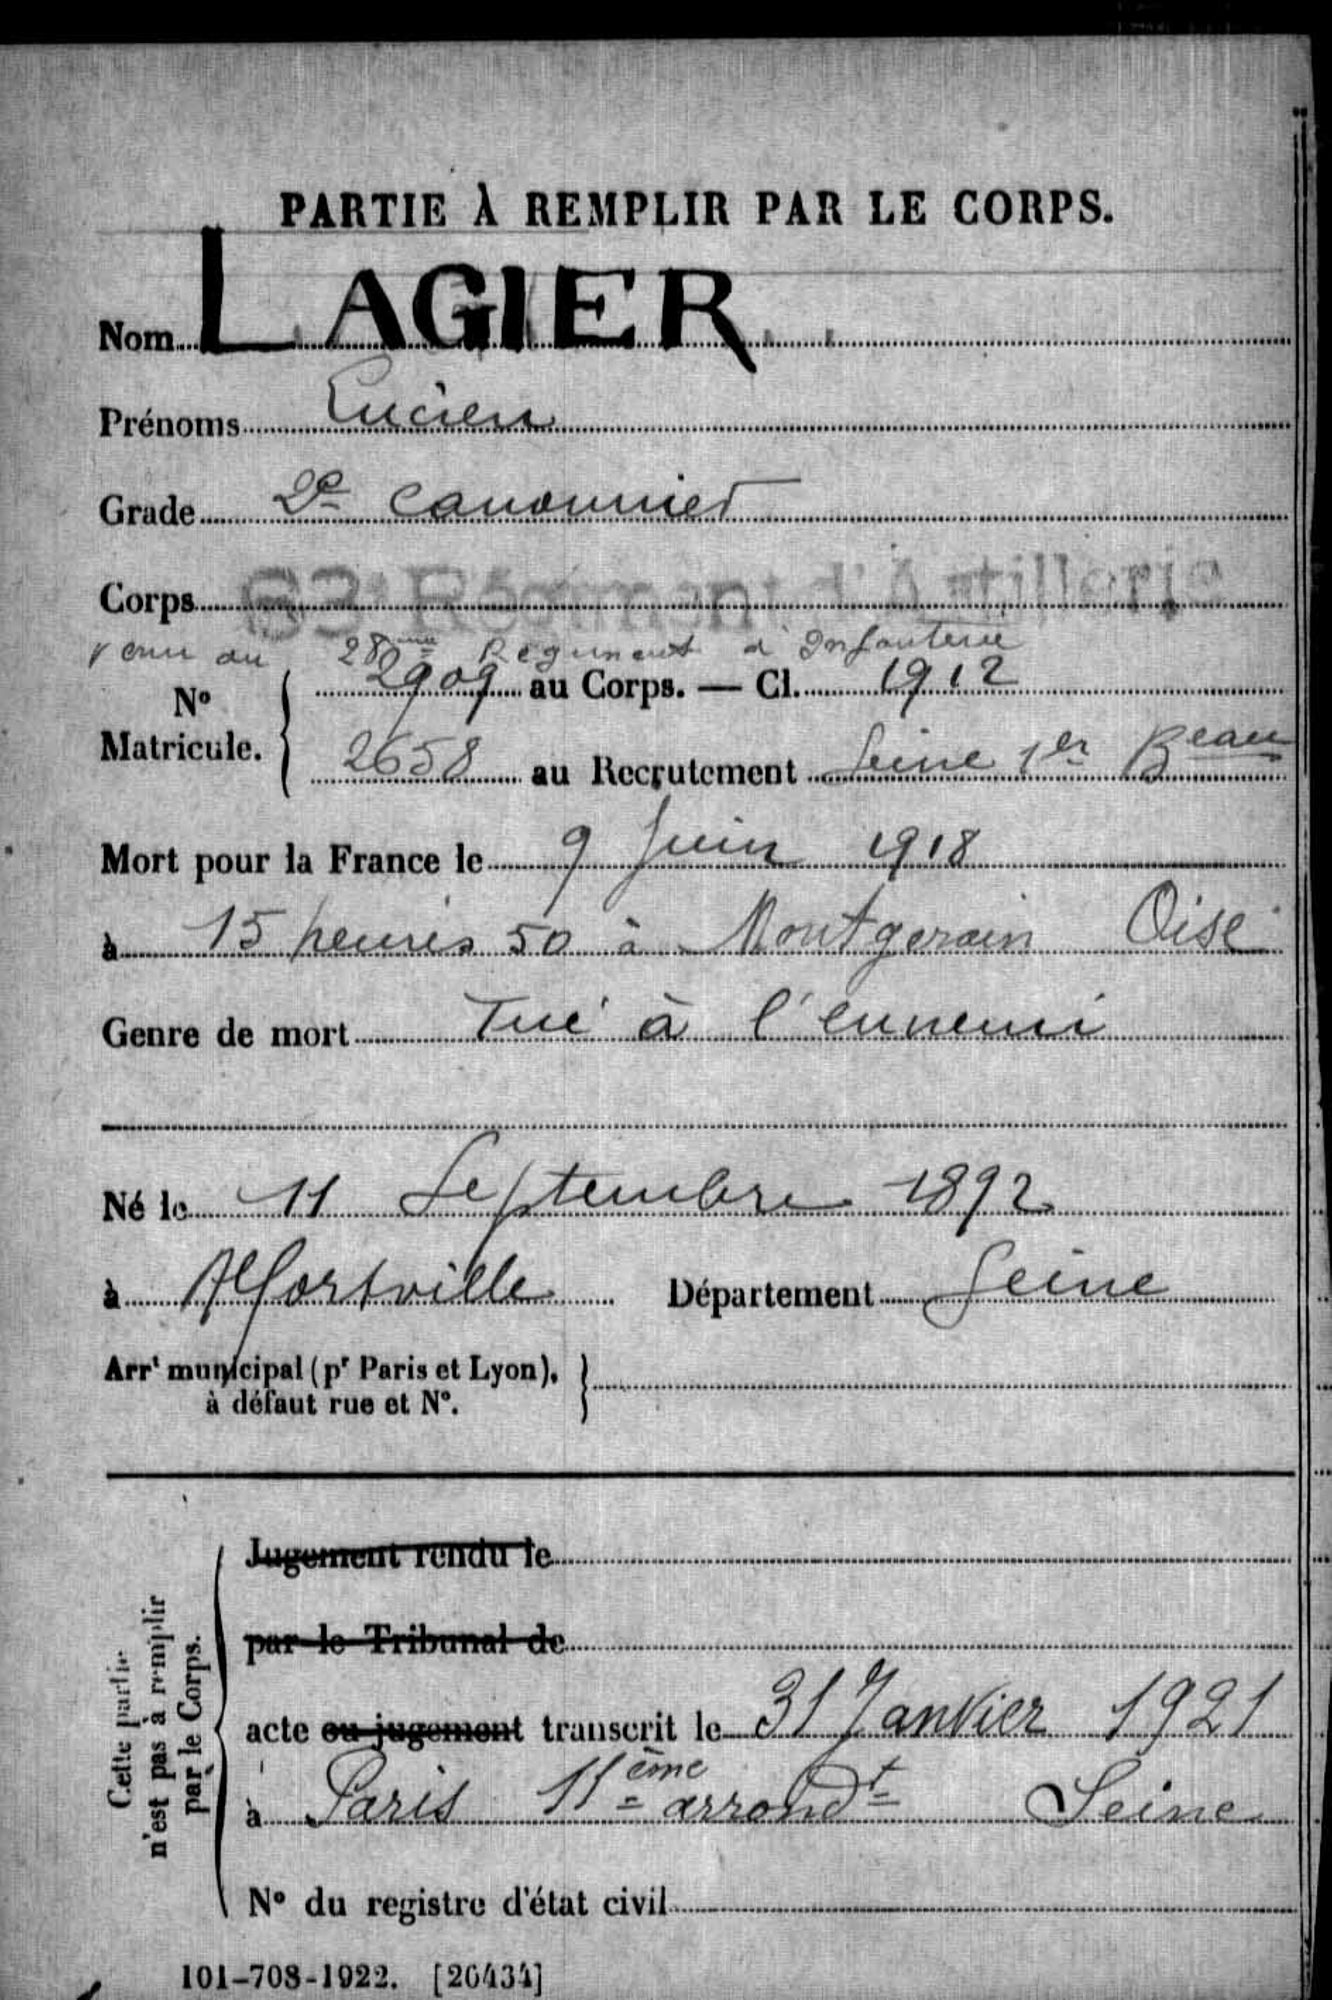 PARTIE À REMPLIR PAR LE CORPS.
Nom LAGIER
Prénoms Lucien
Grade 2e canonnier
Corps 63e Régiment d'Artillerie
venu du 28ème Régiment d'Infanterie
2909 au Corps. — Cl. 1912
N° Matricule.
2658 au Recrutement Seine 1er Beau
Mort pour la France le 9 Juin 1918
à 15 heures 50 à Montgerain Oise
Genre de mort Tué à l'ennemi
Né le 11 Septembre 1892
à Alfortville Département Seine
Arrt municipal (pr Paris et Lyon),
à défaut rue et N°.
Cette partie
n'est pas à remplir
par le Corps.
Jugement rendu le
par le Tribunal de
acte ou jugement transcrit le 31 Janvier 1921
à Paris 11ème arrondt Seine
N° du registre d'état civil
101-708-1922. [26434]